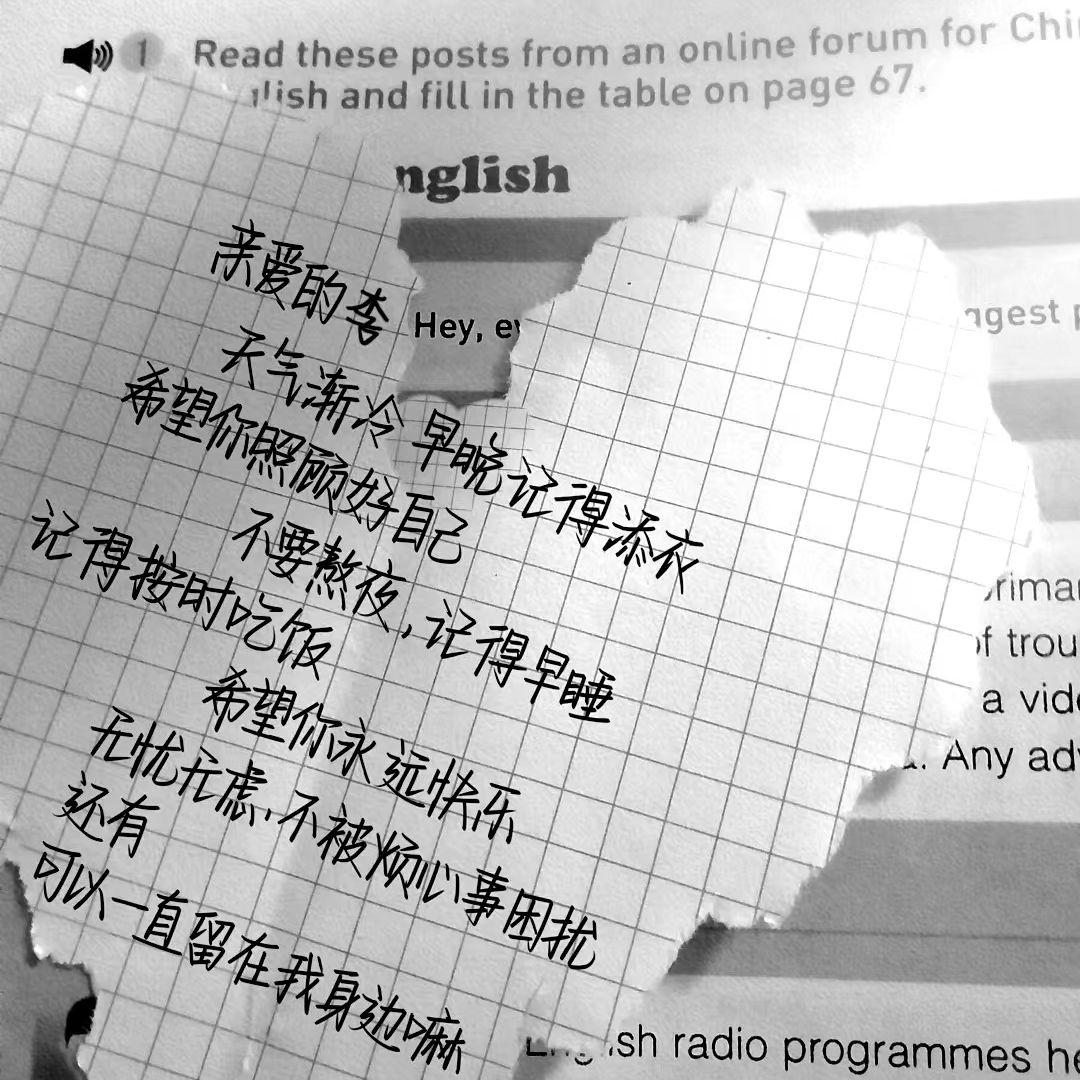 1 Read these posts from an online forum for Chi
lish and fill in the table on page 67.
nglish
亲爱的李
Hey, e
ggest p
天气渐冷 早晚记得添衣
希望你照顾好自己
不要熬夜,记得早睡
记得按时吃饭
希望你永远快乐
无忧无虑,不被烦心事困扰
还有
可以一直留在我身边嘛
rima
of trou
a vide
. Any adv
sh radio programmes he